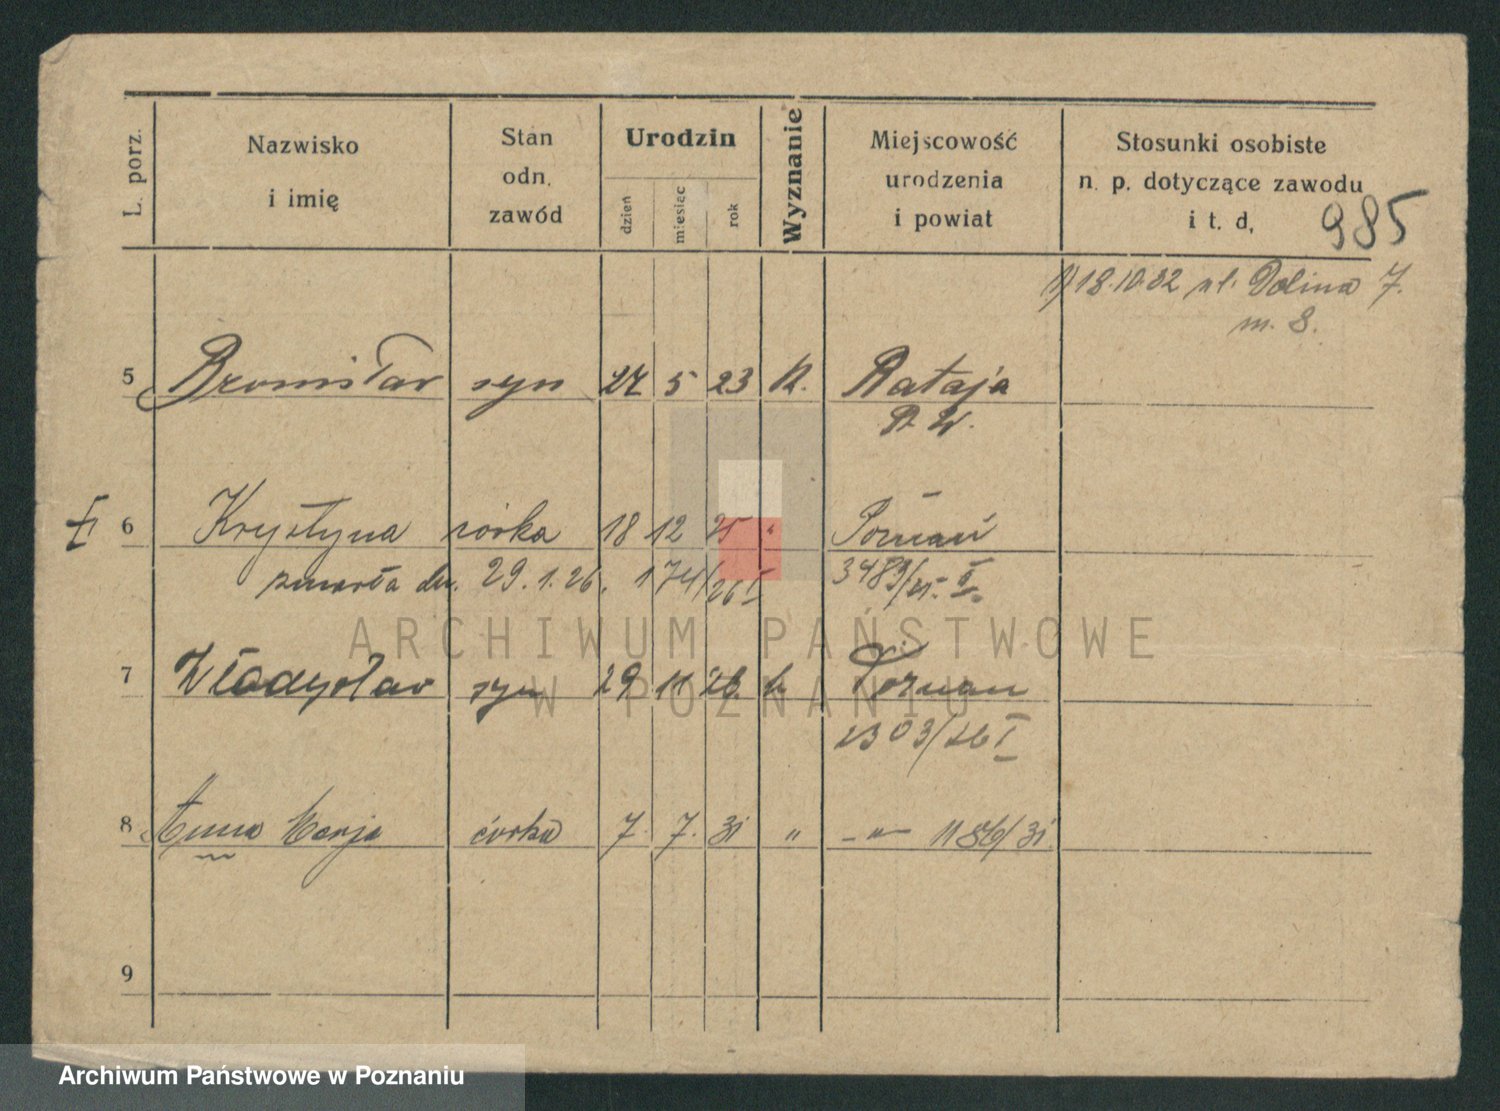 L. porz.
Nazwisko
i imię
Stan
odn.
zawód
Urodzin
dzień
miesiąc
rok
Wyznanie
Miejscowość
urodzenia
i powiat
Stosunki osobiste
n. p. dotyczące zawodu
i t. d.
985
18.10.32 ul. Dolina 7.
m. 8.
5 Bronisław syn 27 5 23 k. Rataja
P. W.
6 Krystyna córka 18 12 25 " Poznań
zmarła dn. 29.1.26. 174/26 I 3483/25 II.
7 Władysław syn 29 11 26 k. Poznań
2303/26 I
8 Anna Marja córka 7. 7. 31 " -"- 1186/31
9
ARCHIWUM PAŃSTWOWE
W POZNANIU
Archiwum Państwowe w Poznaniu